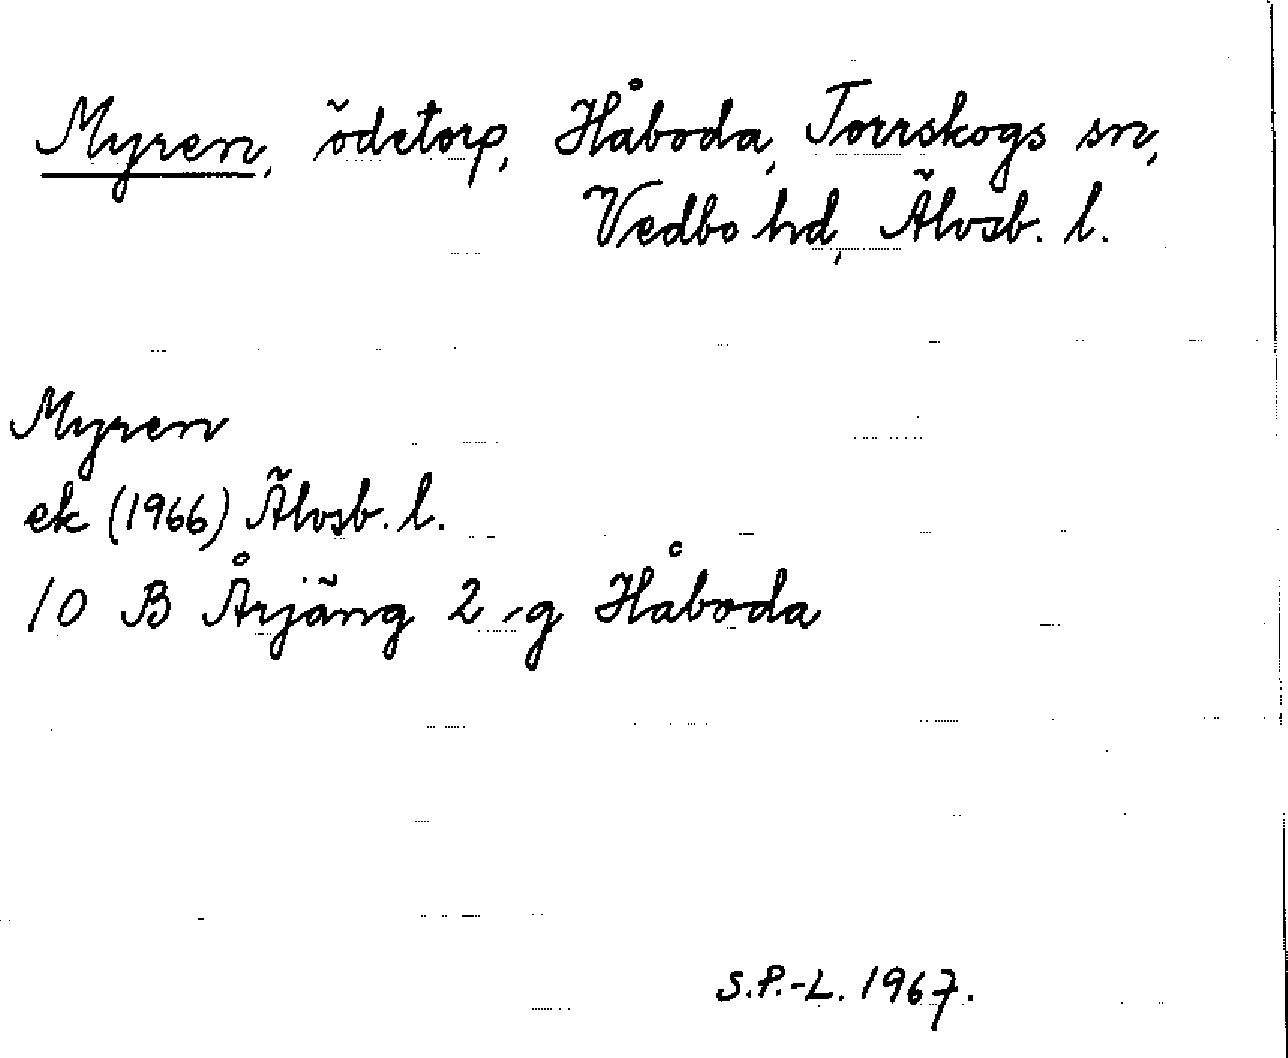 Myren, ödetorp, Håboda, Torrskogs sn,
Vedbo hd, Älvsb. l.
Myren
ek (1966) Älvsb. l.
10 B Årjäng 2 g Håboda
S.P.-L. 1967.